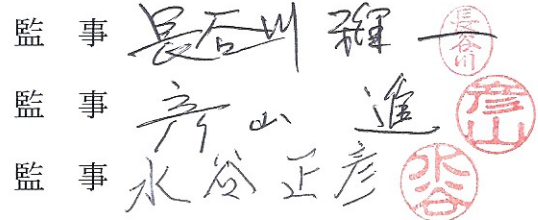 監 事 長谷川 種一 長谷川
監 事 彦山 進 彦山
監 事 水谷 正彦 水谷